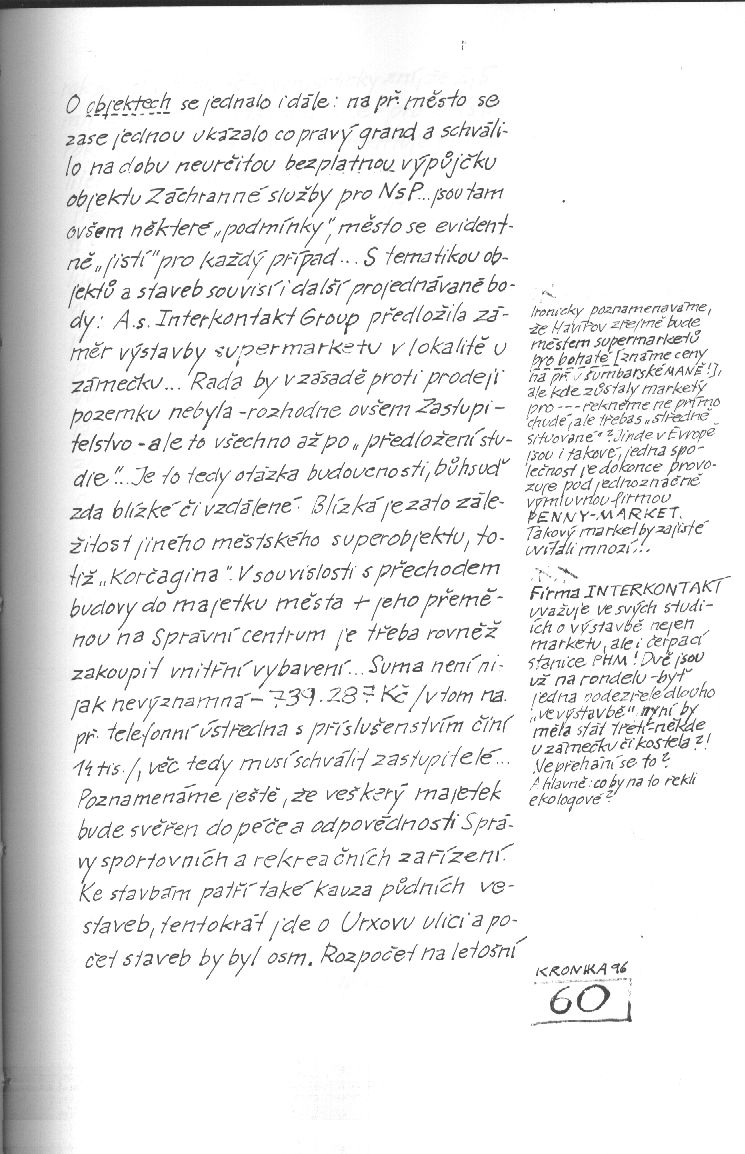 O objektech se jednalo i dále: na př. město se
zase jednou ukázalo co pravý grand a schváli-
lo na dobu neurčitou bezplatnou výpůjčku
objektu Záchranné služby pro NsP... jsou tam
ovšem některé „podmínky“, město se evident-
ně „jistí“ pro každý případ... S tematikou ob-
jektů a staveb souvisí i další projednávané bo-
dy: A.s. Interkontakt Group předložila zá-
měr výstavby supermarketu v lokalitě u
zámečku... Rada by v zásadě proti prodeji
pozemku nebyla - rozhodne ovšem Zastupi-
telstvo - ale to všechno až po „předložení stu-
die“... Je to tedy otázka budoucnosti, bůhsuď
zda blízké či vzdálené. Blízká je zato zále-
žitost jiného městského superobjektu, to-
tiž „Korčagina“. V souvislosti s přechodem
budovy do majetku města + jeho přemě-
nou na Správní centrum je třeba rovněž
zakoupit vnitřní vybavení... Suma není ni-
jak nevýznamná - 739.287 Kč /v tom na.
př. telefonní ústředna s příslušenstvím činí
14 tis./, věc tedy musí schválit zastupitelé...
Poznamenáme ještě, že veškerý majetek
bude svěřen do péče a odpovědnosti Sprá-
vy sportovních a rekreačních zařízení.
Ke stavbám patří také kauza půdních ve-
staveb, tentokrát jde o Urxovu ulici a po-
čet staveb by byl osm. Rozpočet na letošní
Ironicky poznamenáváme,
že Havířov zřejmě bude
městem supermarketů
pro bohaté [známe ceny
na př. v šumbarské MANĚ!],
ale kde zůstaly markety
pro --- řekněme ne přímo
chudé, ale třebas „středně
situované“? Jinde v Evropě
jsou i takové, jedna spo-
lečnost je dokonce provo-
zuje pod jednoznačně
výmluvnou firmou
PENNY-MARKET.
Takový market by zajisté
uvítali mnozí!..
Firma INTERKONTAKT
uvažuje ve svých studi-
ích o výstavbě nejen
marketu, ale i čerpací
stanice PHM! Dvě jsou
už na rondelu - byť
jedna podezřele dlouho
„ve výstavbě“, nyní by
měla stát třetí - někde
u zámečku či kostela?!
Nepřehání se to?
A hlavně: co by na to řekli
ekologové?!
KRONIKA 96
60